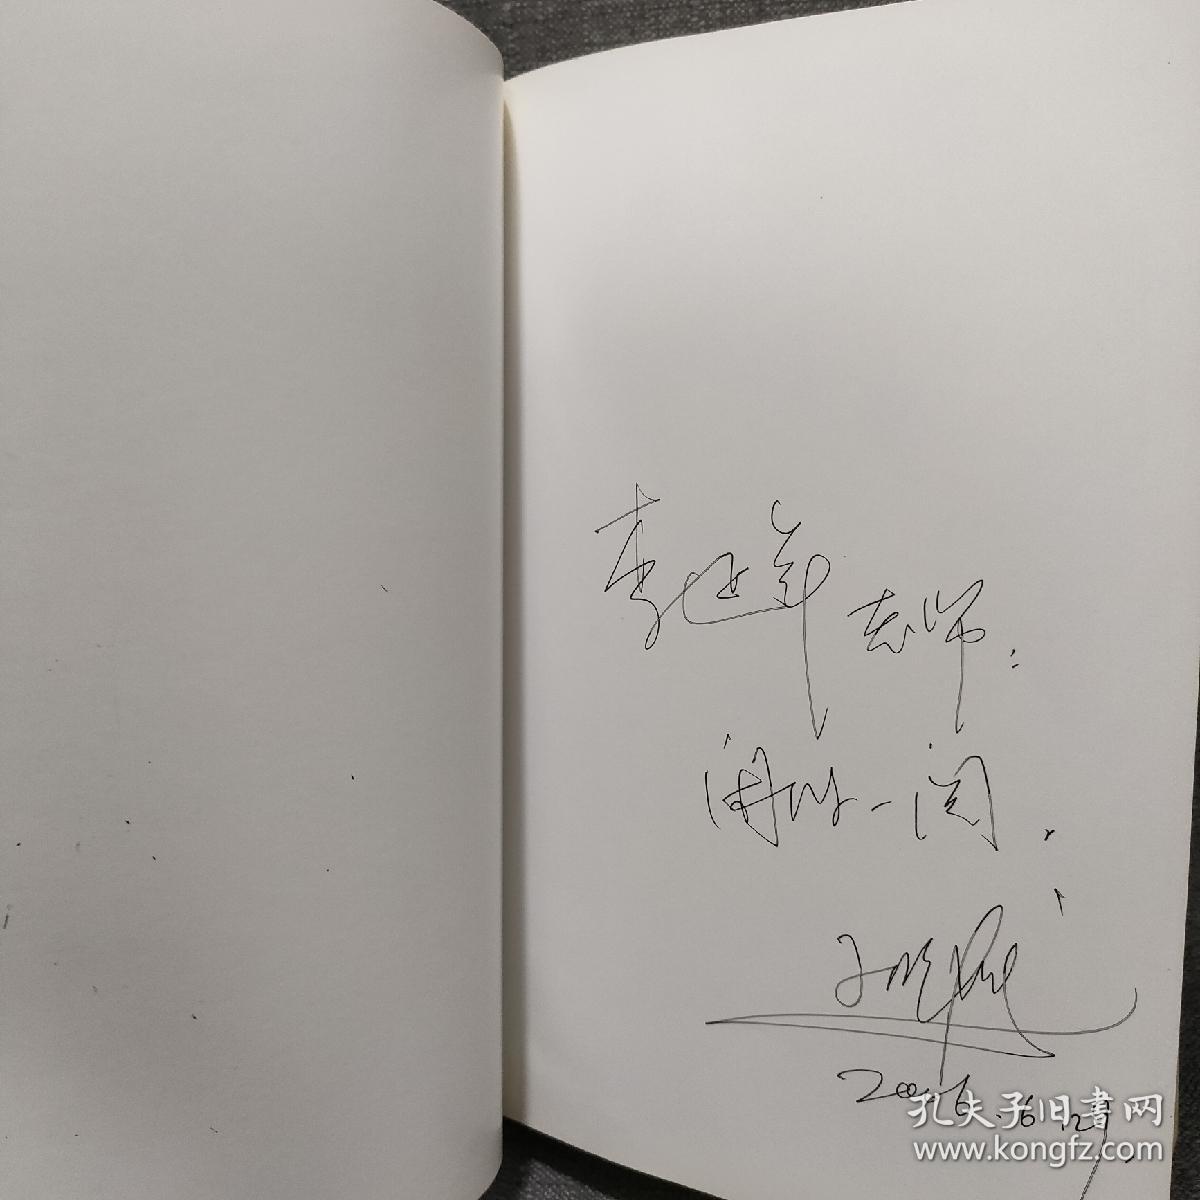 李延年老师:
闲时一阅.
2006.6.29
孔夫子旧書网
www.kongfz.com